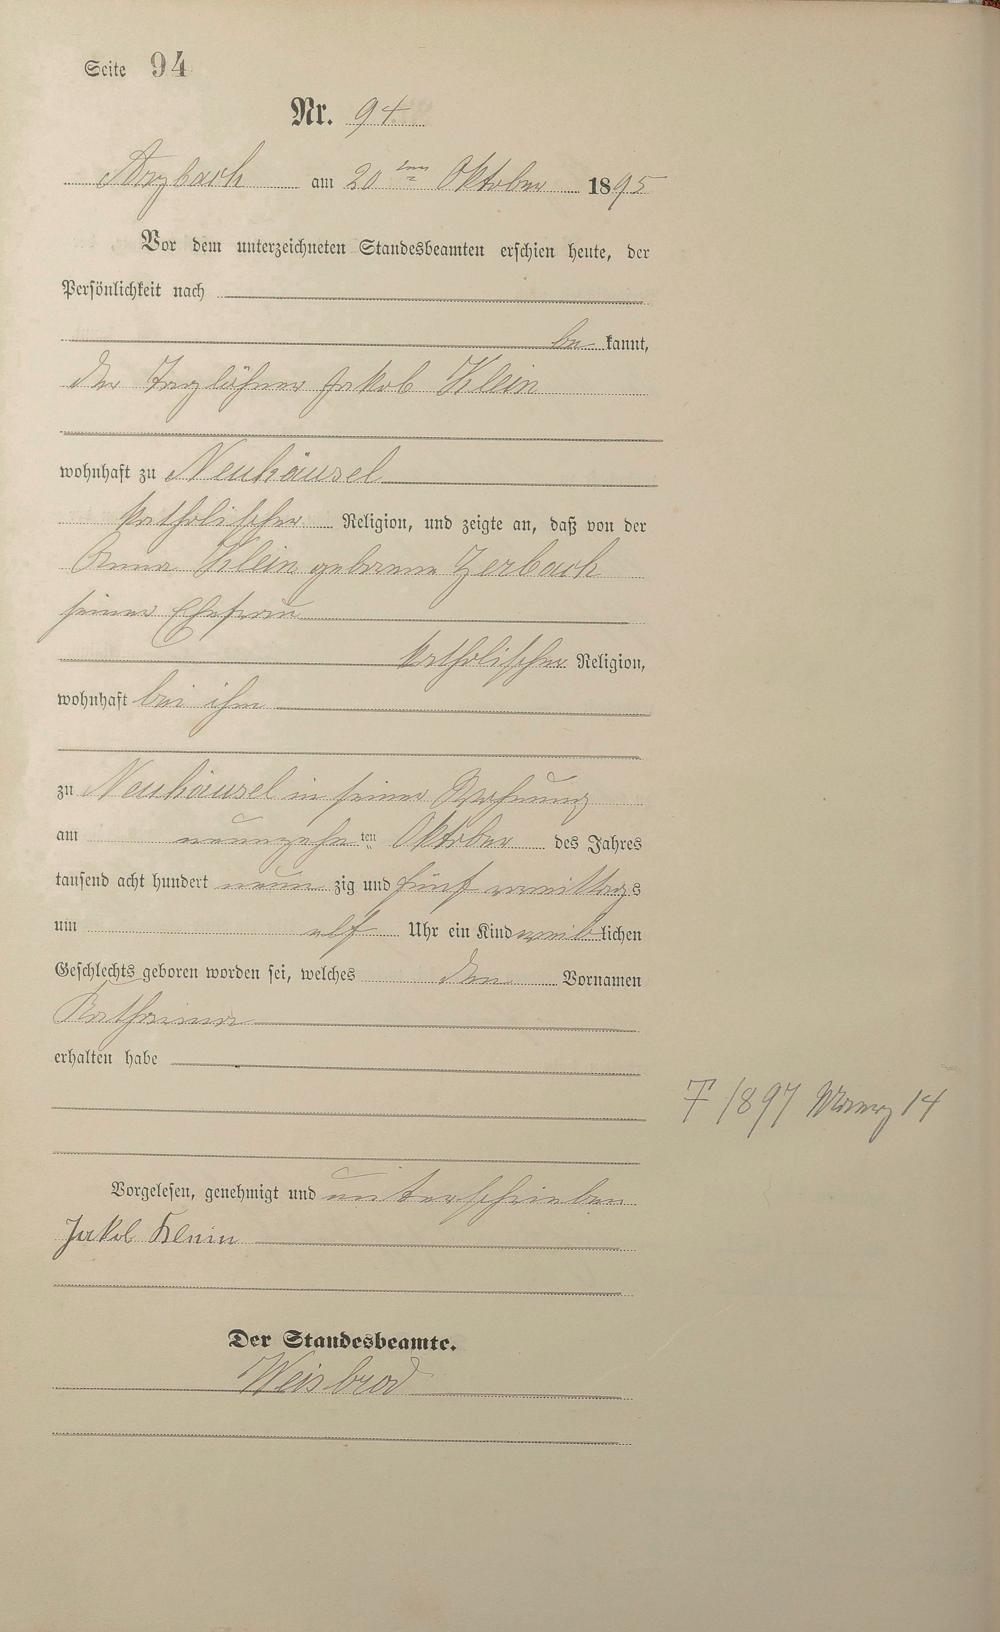 Seite 94
Nr. 94
Arzbach am 20ten Oktober 1895
Vor dem unterzeichneten Standesbeamten erschien heute, der
Persönlichkeit nach
be kannt,
der Taglöhner Jakob Klein
wohnhaft zu Neuhäusel
katholischer Religion, und zeigte an, daß von der
Anna Klein geborene Zerbach
seiner Ehefrau
katholischer Religion,
wohnhaft bei ihm
zu Neuhäusel in seiner Wohnung
am neunzehnten Oktober des Jahres
tausend acht hundert neun zig und fünf vormittags
um elf Uhr ein Kind weiblichen
Geschlechts geboren worden sei, welches den Vornamen
Katharina
erhalten habe
† 1897 Maerz 14
Vorgelesen, genehmigt und unterschrieben
Jakob Klein
Der Standesbeamte.
Weisbrod